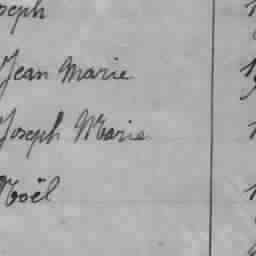 Jean Marie
Joseph Marie
Noël